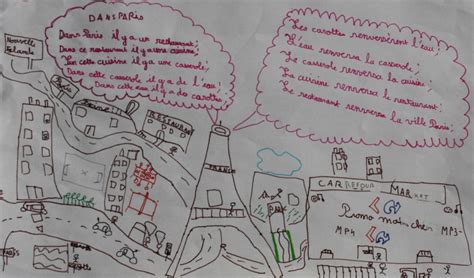 DANS PARIS
Dans Paris il y a un restaurant;
Dans ce restaurant il y a une cuisine;
Dans cette cuisine il y a une casserole;
Dans cette casserole il y a de l'eau;
Dans cette eau il y a des carottes
Les carottes renversèrent l'eau;
L'eau renversa la casserole;
La casserole renversa la cuisine;
La cuisine renversa le restaurant;
Le restaurant renversa la ville Paris;
Nouvelle
Paris
RESTAURANT
PARIS
CARREFOUR
MARKET
Promo
MP4
MP3
PARIS